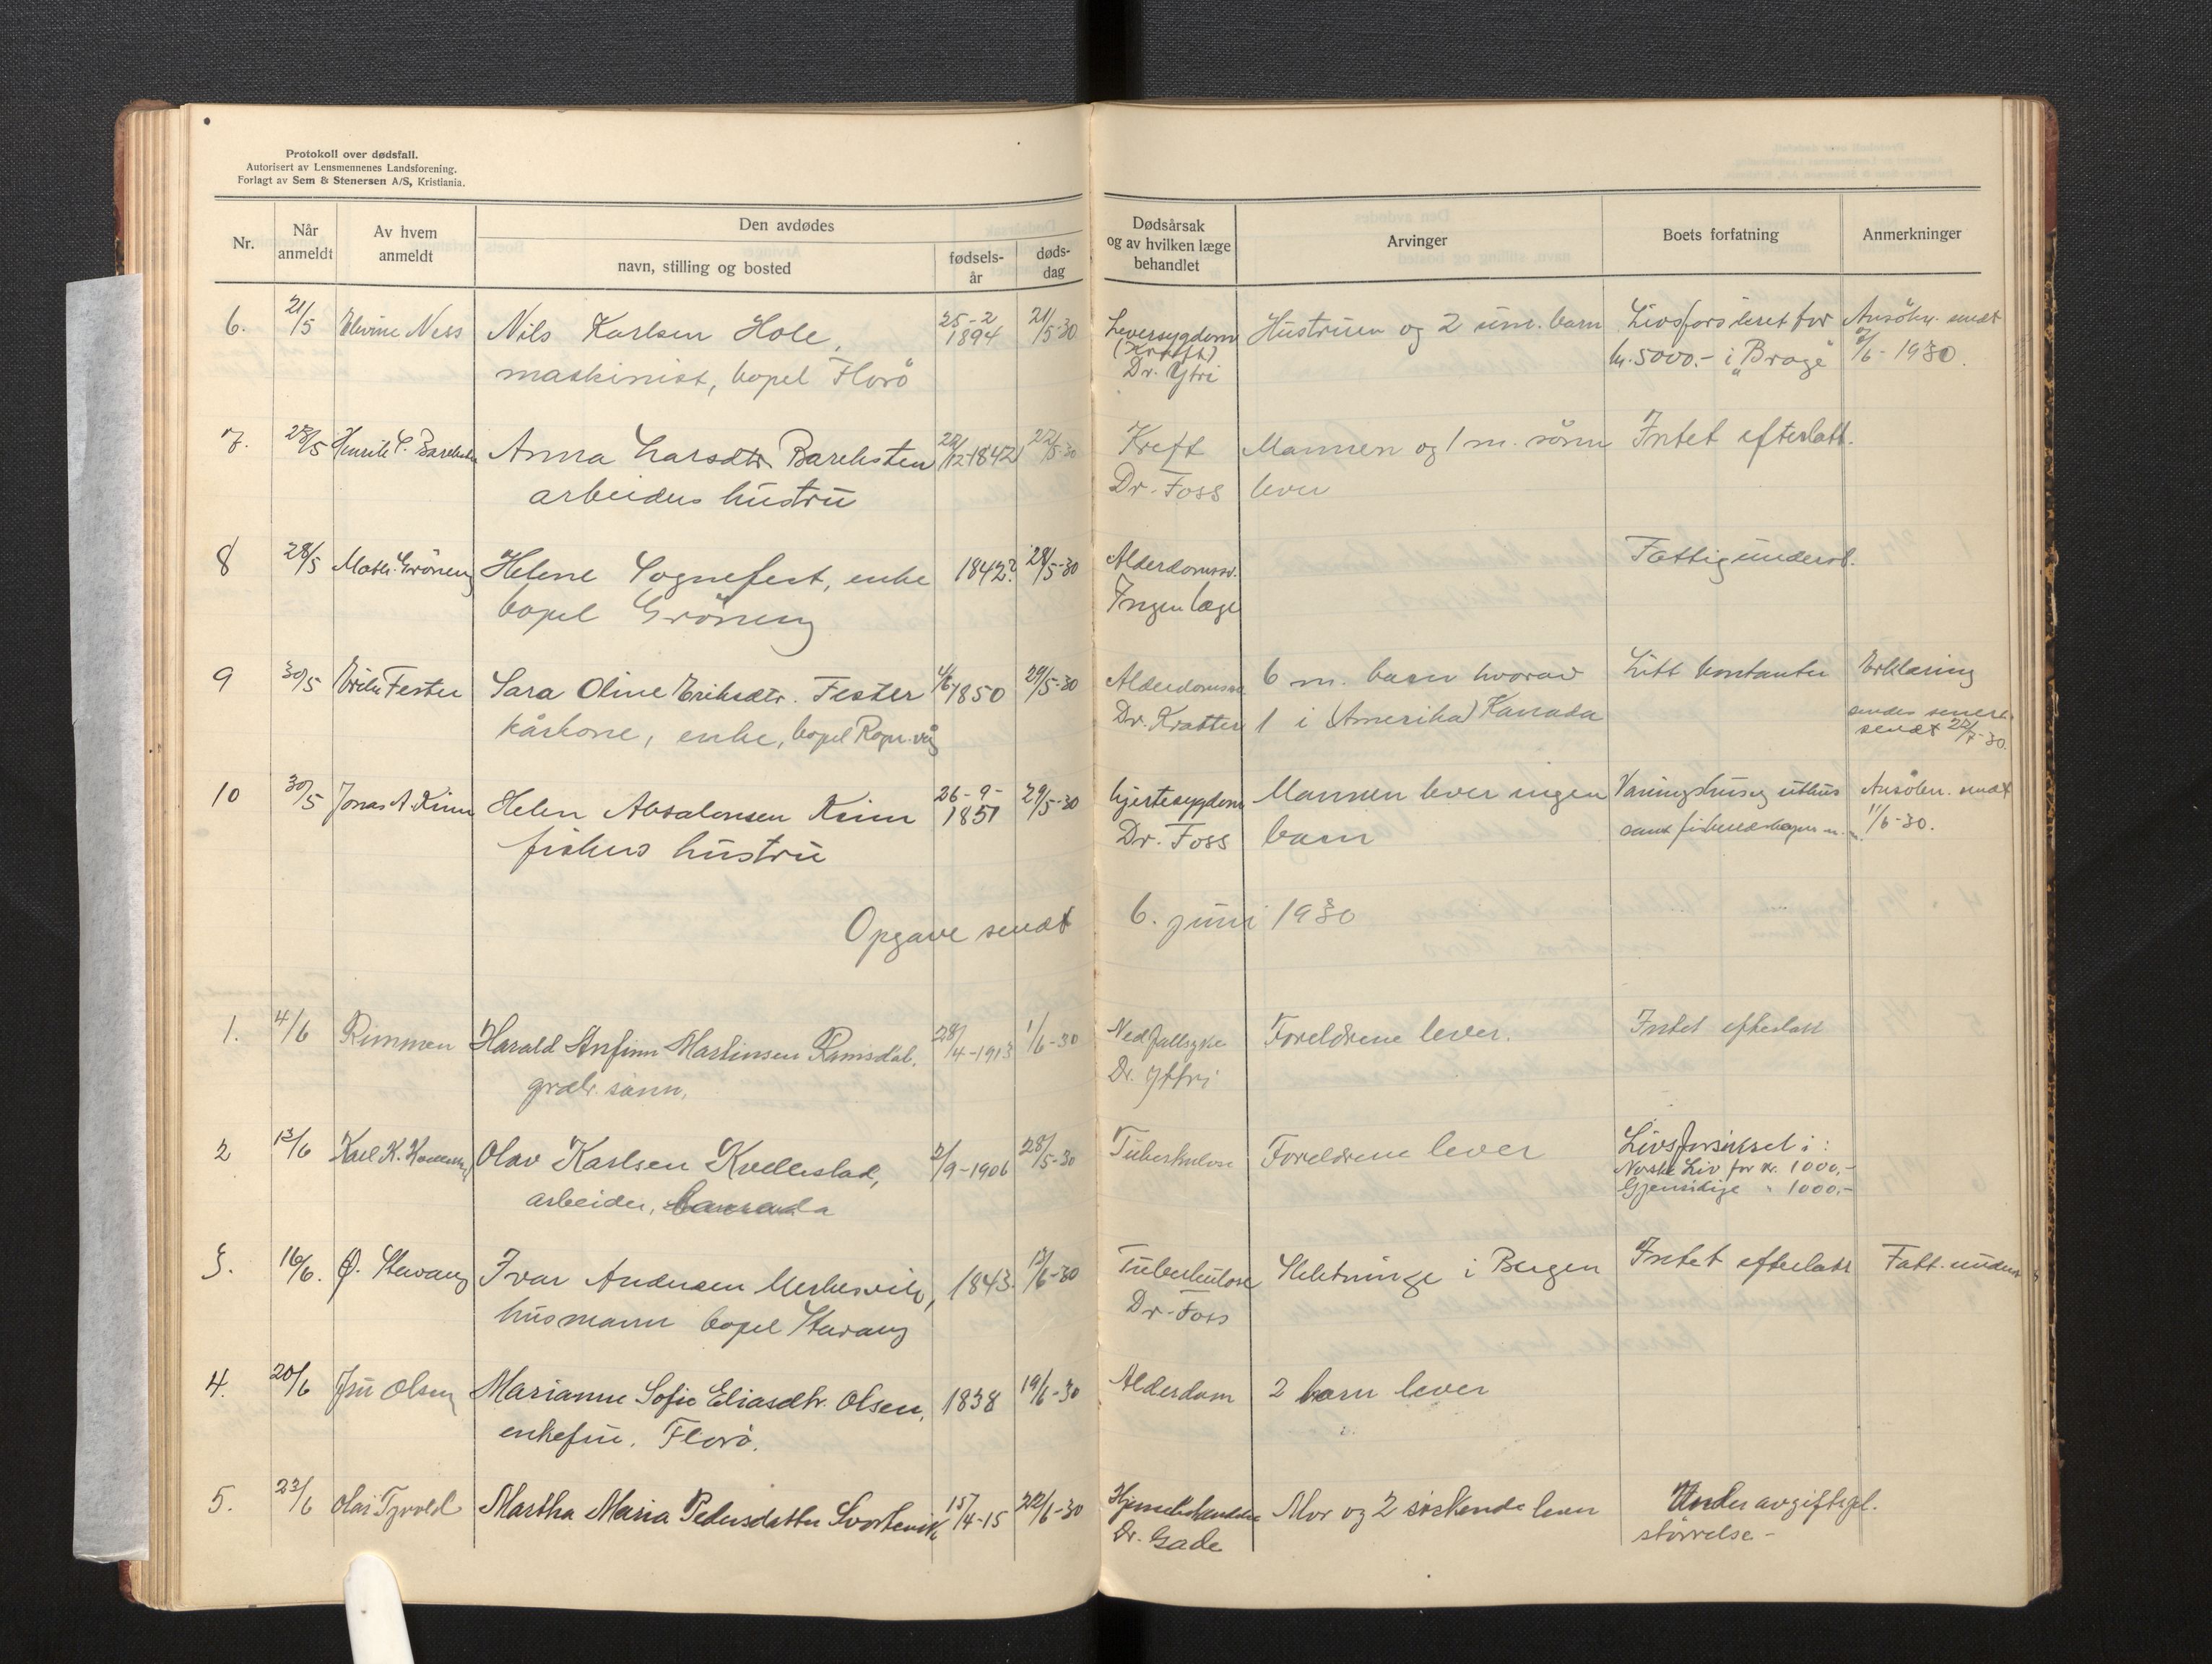 Protokoll over dødsfall.
Autorisert av Lensmennenes Landsforening.
Forlagt av Sem & Stenersen A/S, Kristiania.
Nr. Når anmeldt Av hvem anmeldt Den avdødes navn, stilling og bosted fødsels-år døds-dag Dødsårsak og av hvilken læge behandlet Arvinger Boets forfatning Anmerkninger
6. 21/5 Elvine Ness Nils Karlsen Hole, 25-2 1894 21/5-30 Leversygdom Hustruen og 2 um. barn Livsforsikret for Ansökn. sendt
maskinist, bopel Florö (Kreft) Dr. Ytri kr. 5000.- i "Brage" /6-1930.
7. 28/5 Henrik Barekst Anna Larsdtr. Bareksten 22/12-1842 22/5-30 Kreft Mannen og 1 m. sönn Intet efterlatt.
arbeiders hustru Dr. Foss lever
8 28/5 Math. Gröneng Helene Sognefest, enke 1842? 28/5-30 Alderdomssv. Fattigunderst.
bopel Gröneng Ingen læge
9 30/5 Erik Fester Sara Oline Eriksdtr. Fester 4/6 1850 29/5-30 Alderdomssv. 6 m. barn hvorav Litt kontanter Erklæring
kårkone, enke, bopel Dr. 1 i (Amerika) Kanada sendes senere.
sendt 22/7-30.
10 30/5 Jonas A. Kinn Helen Absalonsen Kinn 26-9-1851 29/5-30 hjertesygdom Mannen lever ingen Vaningshus og uthus Ansökn. sendt
fiskers hustru Dr. Foss barn samt m. m. 11/6-30.
Opgave sendt 6. juni 1930
1. 4/6 Rimmen Harald Anfinn Martinsen Ramsdal, 28/4-1913 1/6-30 Nedfallsyke Foreldrene lever. Intet efterlatt
grdbr. sønn, Dr. Yttri
2 13/6 Karl K. Olav Karlsen Kvellestad, 2/9-1906 28/5-30 Tuberkulose Foreldrene lever Livsforsikret i:
arbeider, Canada Norske Liv for kr. 1000,-
Gjensidige " 1000,-
3. 16/6. Ø. Stavang Ivar Andersen 1843. 13/6-30 Tuberkulose Slektninge i Bergen Intet efterlatt Fatt. underst
husmann bopel Stavang Dr. Foss
4. 20/6 Olsen Marianne Sofie Eliasdtr. Olsen, 1838 19/6-30 Alderdom 2 barn lever
enkefru. Florö.
5. 23/6 Olai Tyvold Martha Maria Pedersdatter Svortevik 15/4-15 22/6-30 Mor og 2 søskende lever Under avgiftspl.
Dr. Gade størrelse -